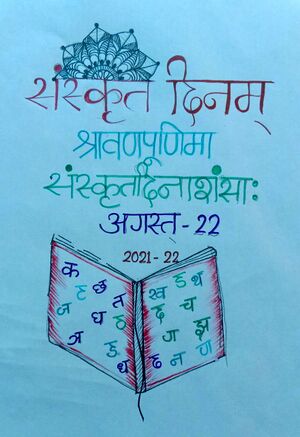 संस्कृत दिनम्
श्रावणपूर्णिमा
संस्कृतदिनाशंसाः
अगस्त - 22
2021 - 22
क ख ह थ
ज ह छ त द च
ध ठ ग झ
ञ ड थ ढ न ण